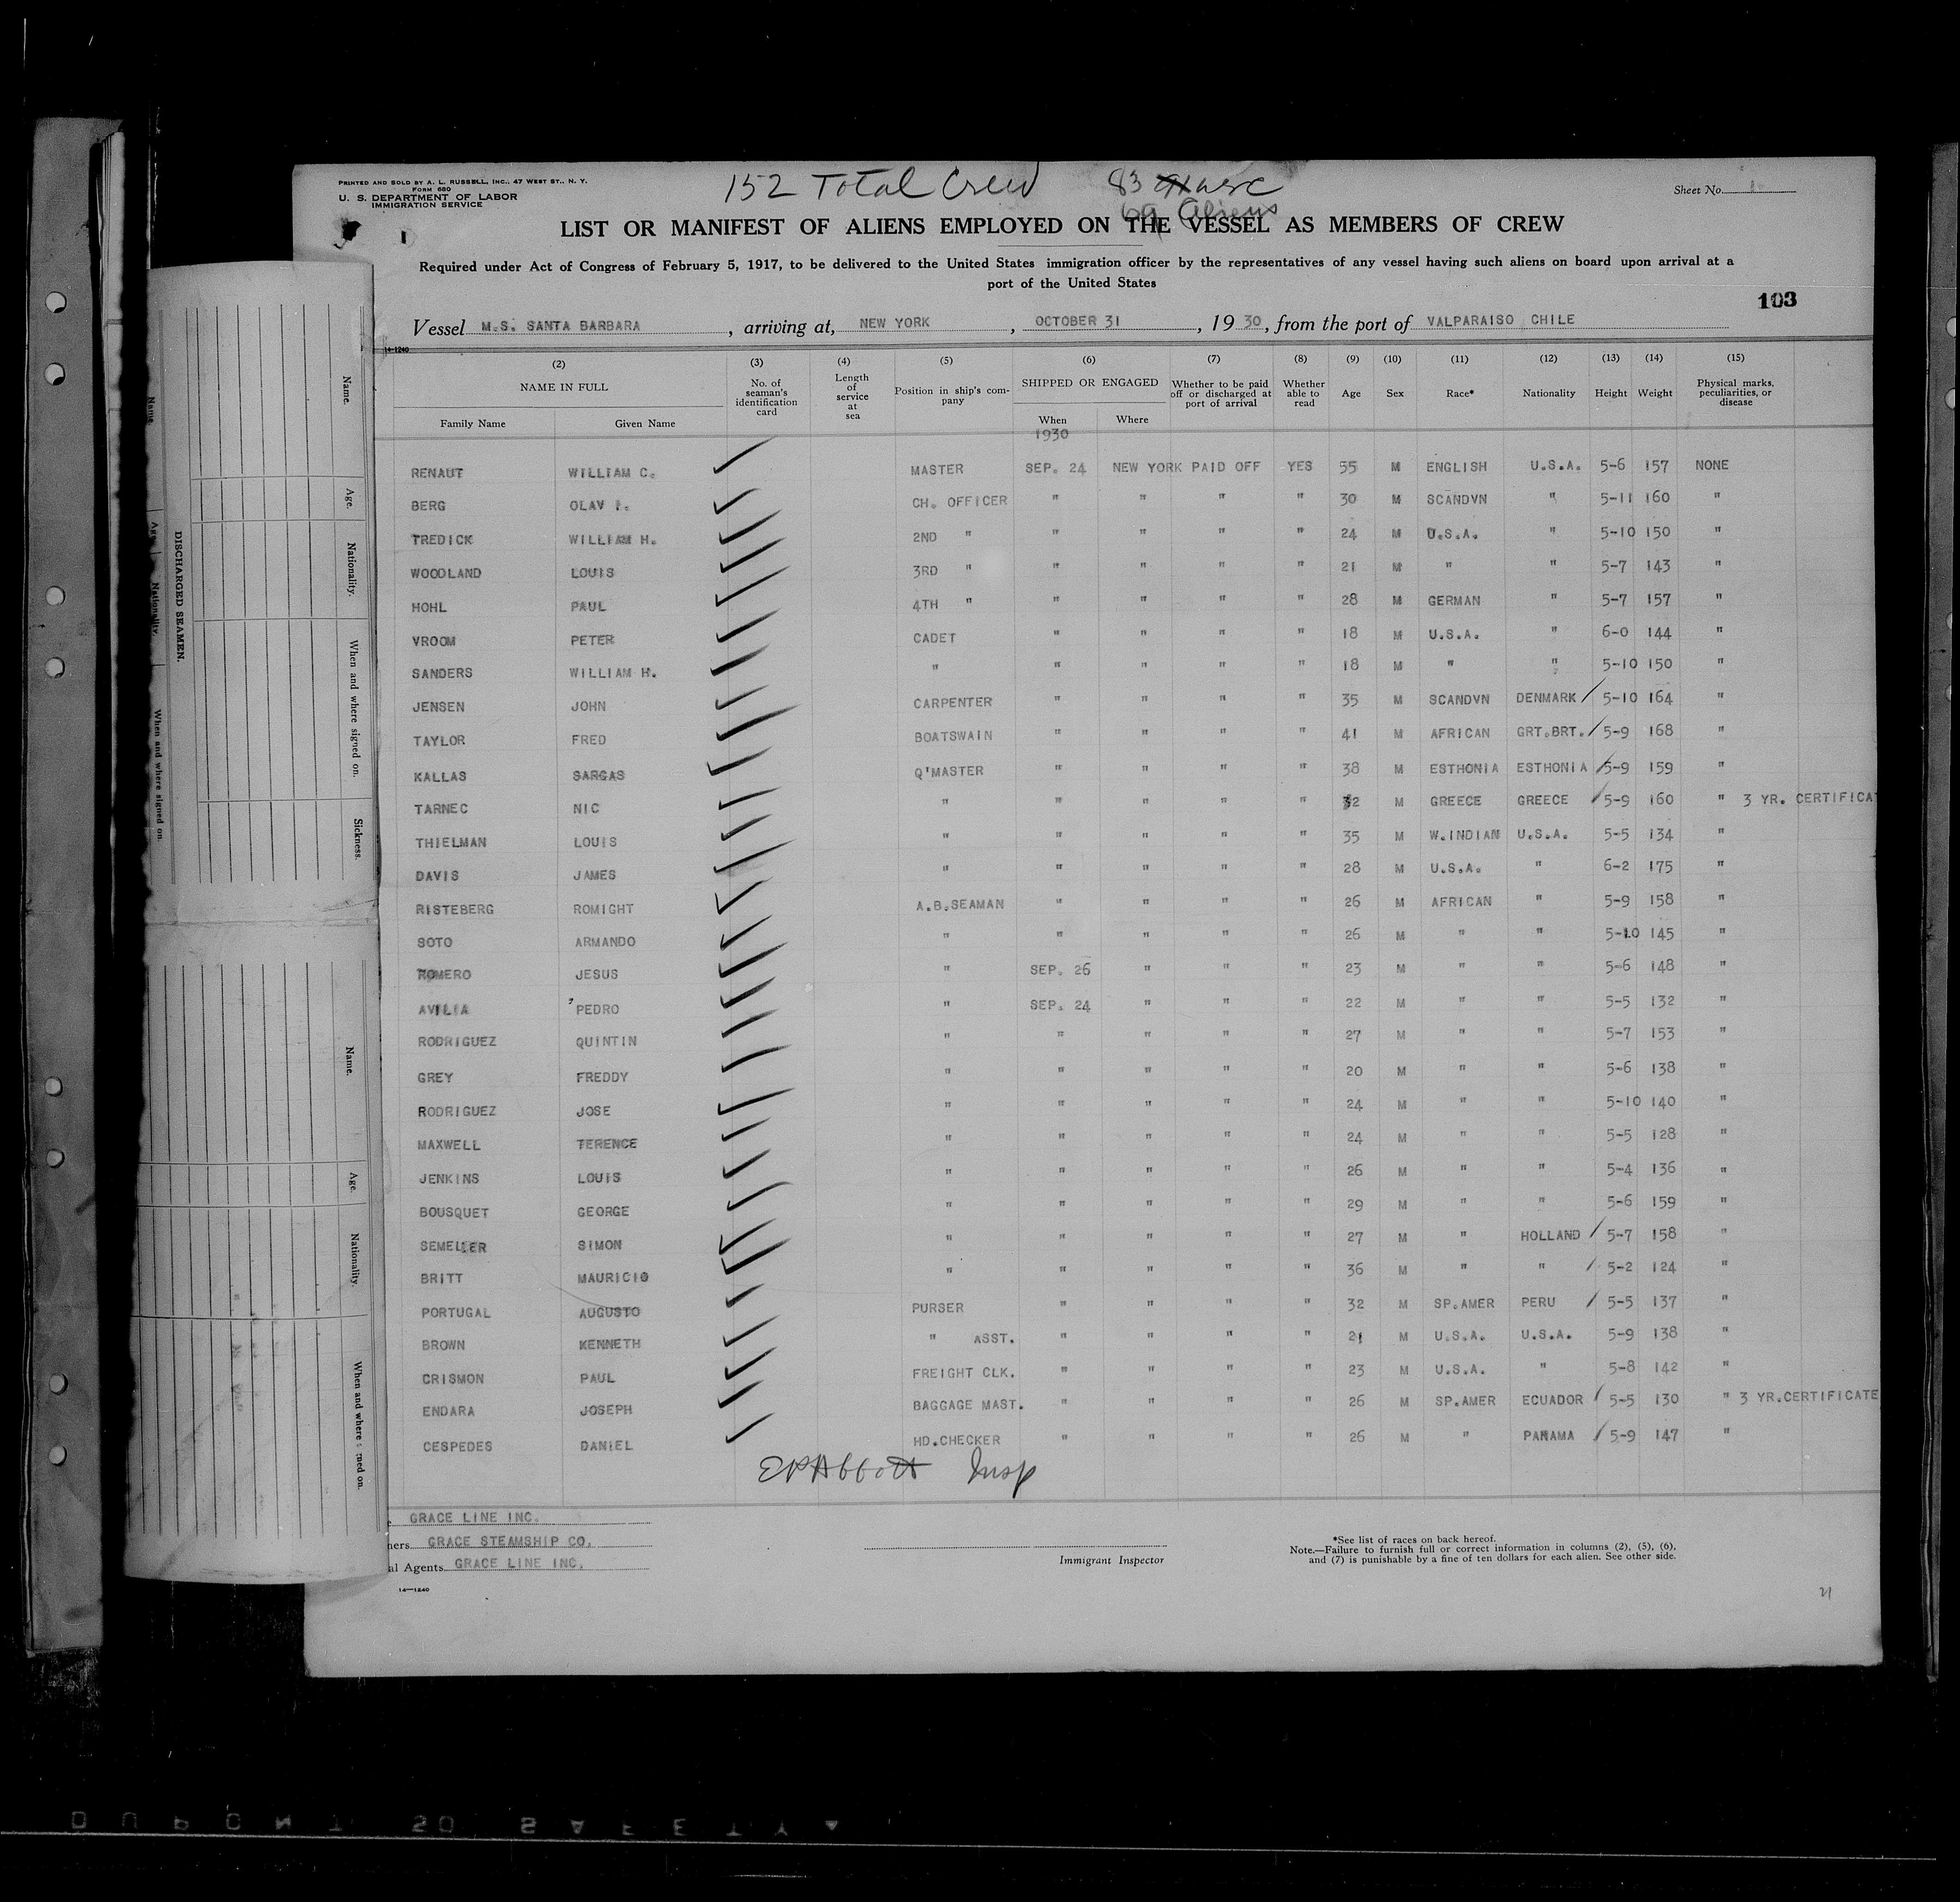 PRINTED AND SOLD BY A. L. RUSSELL, INC., 47 WEST ST., N. Y.
FORM 680
U. S. DEPARTMENT OF LABOR
IMMIGRATION SERVICE
152 Total Crew 83
69 Aliens
Sheet No.
LIST OR MANIFEST OF ALIENS EMPLOYED ON THE VESSEL AS MEMBERS OF CREW
Required under Act of Congress of February 5, 1917, to be delivered to the United States immigration officer by the representatives of any vessel having such aliens on board upon arrival at a
port of the United States
103
Vessel M.S. SANTA BARBARA, arriving at, NEW YORK, OCTOBER 31, 1930, from the port of VALPARAISO CHILE
14-1240
(2) (3) (4) (5) (6) (7) (8) (9) (10) (11) (12) (13) (14) (15)
NAME IN FULL No. of seaman's identification card Length of service at sea Position in ship's company SHIPPED OR ENGAGED Whether to be paid off or discharged at port of arrival Whether able to read Age Sex Race* Nationality Height Weight Physical marks, peculiarities, or disease
Family Name Given Name When Where
1930
RENAUT WILLIAM C. MASTER SEP. 24 NEW YORK PAID OFF YES 55 M ENGLISH U.S.A. 5-6 157 NONE
BERG OLAV I. CH. OFFICER " " " " 30 M SCANDVN " 5-11 160 "
TREDICK WILLIAM H. 2ND " " " " " 24 M U.S.A. " 5-10 150 "
WOODLAND LOUIS 3RD " " " " " 21 M " " 5-7 143 "
HOHL PAUL 4TH " " " " " 28 M GERMAN " 5-7 157 "
VROOM PETER CADET " " " " 18 M U.S.A. " 6-0 144 "
SANDERS WILLIAM H. " " " " " 18 M " " 5-10 150 "
JENSEN JOHN CARPENTER " " " " 35 M SCANDVN DENMARK / 5-10 164 "
TAYLOR FRED BOATSWAIN " " " " 41 M AFRICAN GRT.BRT. / 5-9 168 "
KALLAS SARGAS Q'MASTER " " " " 38 M ESTHONIA ESTHONIA / 5-9 159 "
TARNEC NIC " " " " " 32 M GREECE GREECE / 5-9 160 " 3 YR. CERTIFICA
THIELMAN LOUIS " " " " " 35 M W.INDIAN U.S.A. 5-5 134 "
DAVIS JAMES " " " " " 28 M U.S.A. " 6-2 175 "
RISTEBERG ROMIGHT A.B.SEAMAN " " " " 26 M AFRICAN " 5-9 158 "
SOTO ARMANDO " " " " " 26 M " " 5-10 145 "
ROMERO JESUS " SEP. 26 " " " 23 M " " 5-6 148 "
AVILIA PEDRO " SEP. 24 " " " 22 M " " 5-5 132 "
RODRIGUEZ QUINTIN " " " " " 27 M " " 5-7 153 "
GREY FREDDY " " " " " 20 M " " 5-6 138 "
RODRIGUEZ JOSE " " " " " 24 M " " 5-10 140 "
MAXWELL TERENCE " " " " " 24 M " " 5-5 128 "
JENKINS LOUIS " " " " " 26 M " " 5-4 136 "
BOUSQUET GEORGE " " " " " 29 M " " 5-6 159 "
SEMELIER SIMON " " " " " 27 M " HOLLAND / 5-7 158 "
BRITT MAURICIO " " " " " 36 M " " / 5-2 124 "
PORTUGAL AUGUSTO PURSER " " " " 32 M SP.AMER PERU / 5-5 137 "
BROWN KENNETH " ASST. " " " " 21 M U.S.A. U.S.A. 5-9 138 "
CRISMON PAUL FREIGHT CLK. " " " " 23 M U.S.A. " 5-8 142 "
ENDARA JOSEPH BAGGAGE MAST. " " " " 26 M SP.AMER ECUADOR / 5-5 130 " 3 YR.CERTIFICATE
CESPEDES DANIEL HD.CHECKER " " " " 26 M " PANAMA / 5-9 147 "
EPAbbott Insp
GRACE LINE INC.
ners GRACE STEAMSHIP CO.
al Agents GRACE LINE INC.
14—1240
Immigrant Inspector
*See list of races on back hereof.
Note.—Failure to furnish full or correct information in columns (2), (5), (6),
and (7) is punishable by a fine of ten dollars for each alien. See other side.
21
DISCHARGED SEAMEN.
Name. Age. Nationality. When and where signed on. Sickness.
Name. Age. Nationality. When and where signed on.
Name Age Nationality. When and where signed on.
DUPONT 50 SAFETY